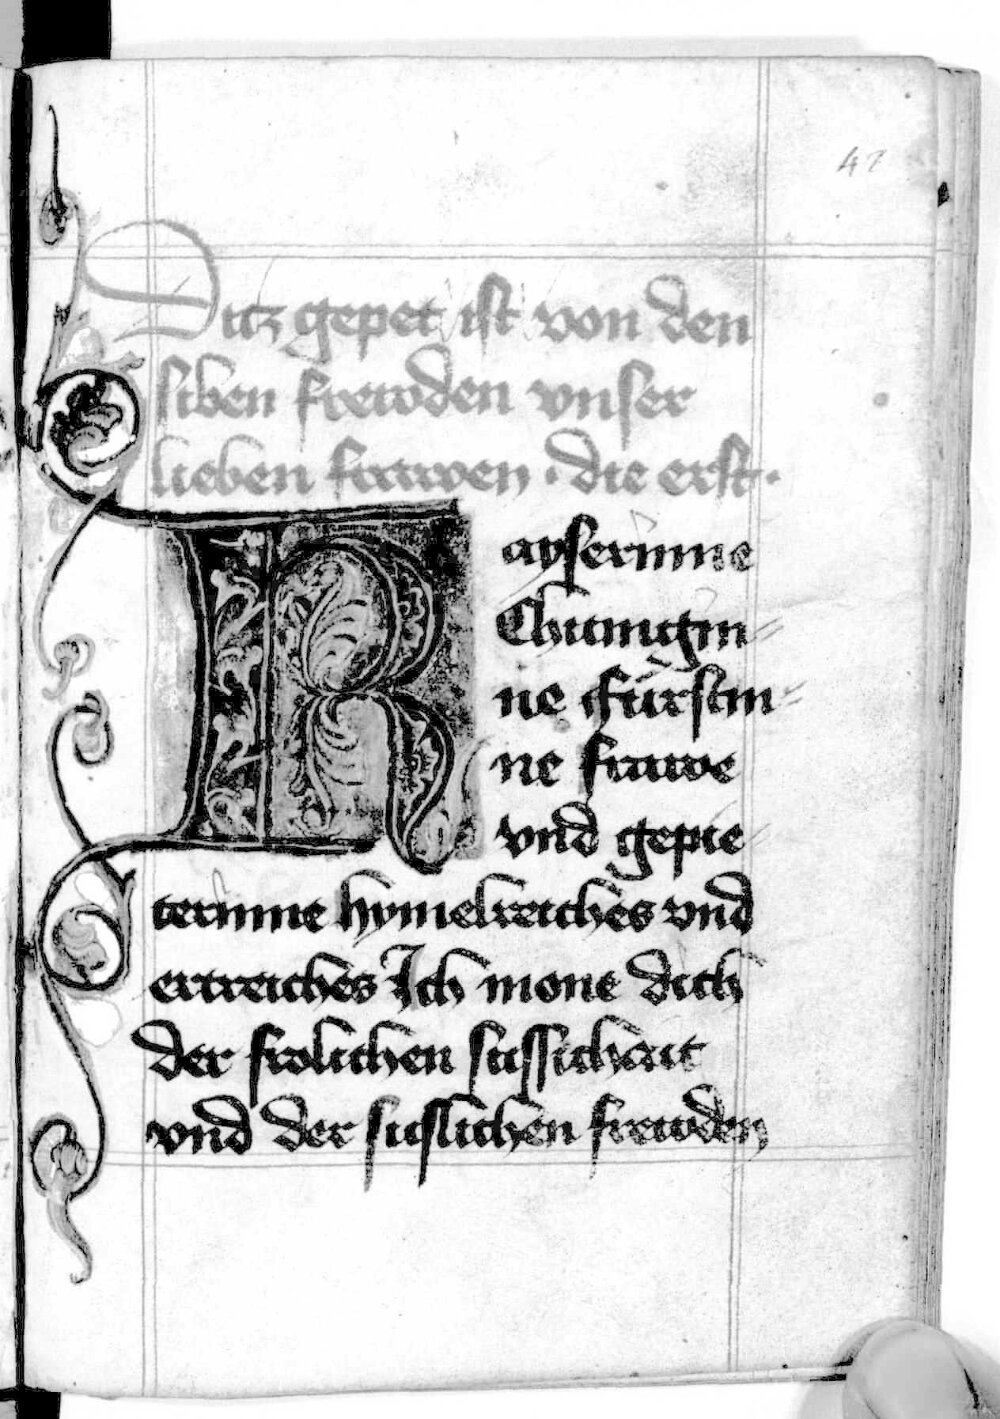 42
Ditz gepet ist von den
siben frewden vnser
lieben frawen · die erst ·
Kayserinne
Chunigin=
ne Fürstin=
ne frawe
vnd gepie=
terinne hymelreiches vnd
ertreiches Ich mone dich
der frolichen sussichait
vnd der suslichen frewden